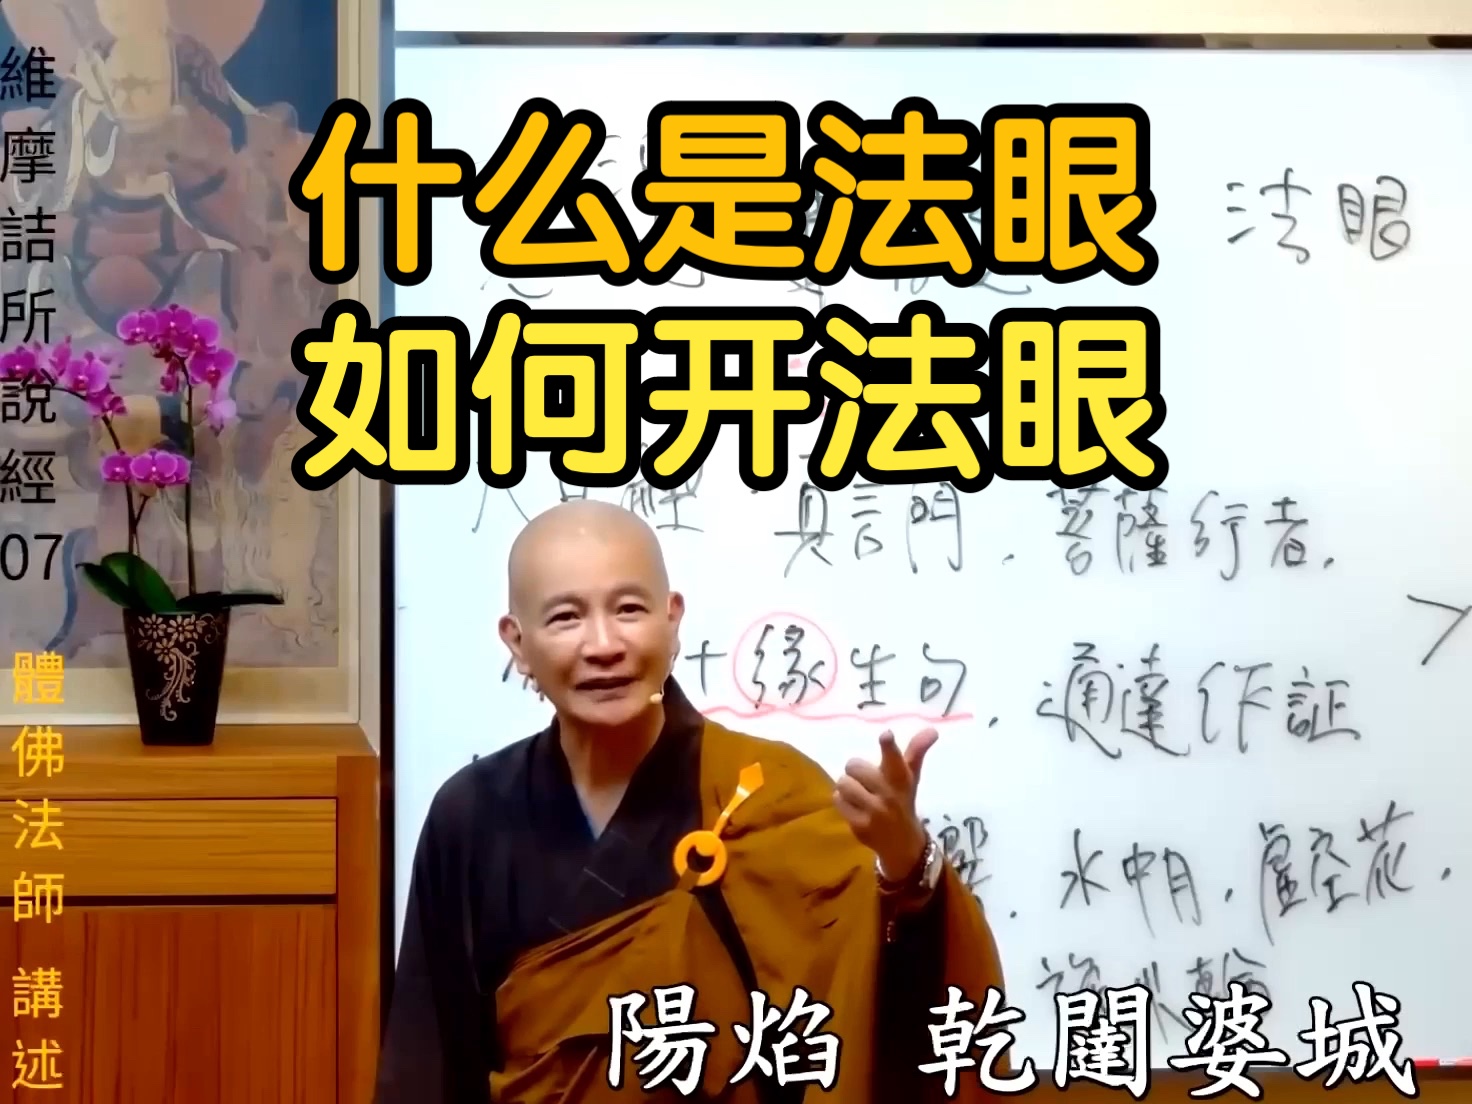 維摩詰所說經07
體佛法師 講述
什么是法眼
如何开法眼
法眼
真言門．菩薩行者．
十緣生句．通達作証
響．水中月．虛空花．
旋火輪
陽焰 乾闥婆城